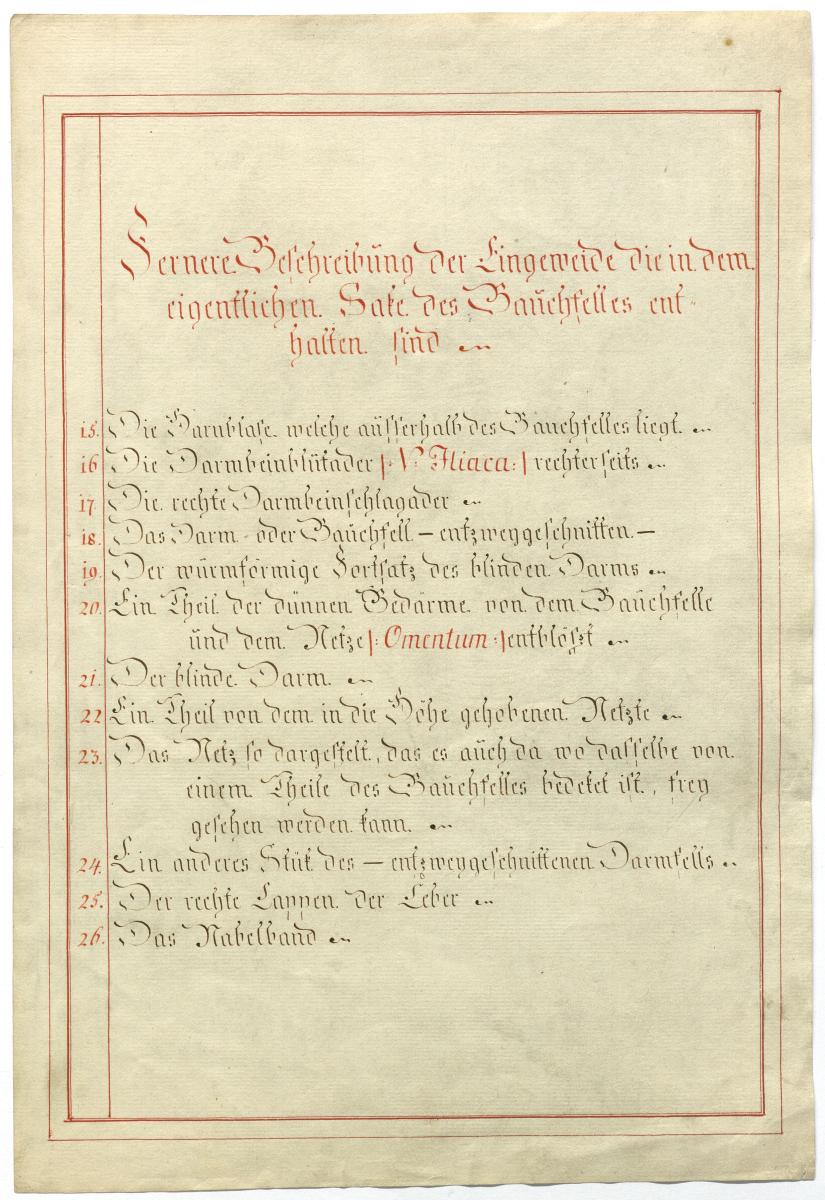 Fernere Beschreibüng der Eingeweide die in dem
eigentlichen Sake des Baüchfelles ent-
halten sind
15. Die Harnblase welche aüsserhalb des Bauchfelles liegt.
16 Die Darmbeinblütader |: V: Iliaca :| rechterseits
17. Die rechte Darmbeinschlagader
18. Das Darm- oder Baüchfell – entzweygeschnitten. –
19. Der würmförmige Fortsatz des blinden Darms
20. Ein Theil der dünnen Gedärme von dem Baüchfelle
ünd dem Netze |: Omentum :| entblößt
21. Der blinde Darm.
22 Ein Theil von dem in die Höhe gehobenen Netzte
23. Das Netz so dargestelt, das es aüch da wo dasselbe von
einem Theile des Baüchfelles bedeket ist, frey
gesehen werden kann.
24. Ein anderes Stük des – entzweygeschnittenen Darmfells
25. Der rechte Lappen der Leber
26. Das Nabelband